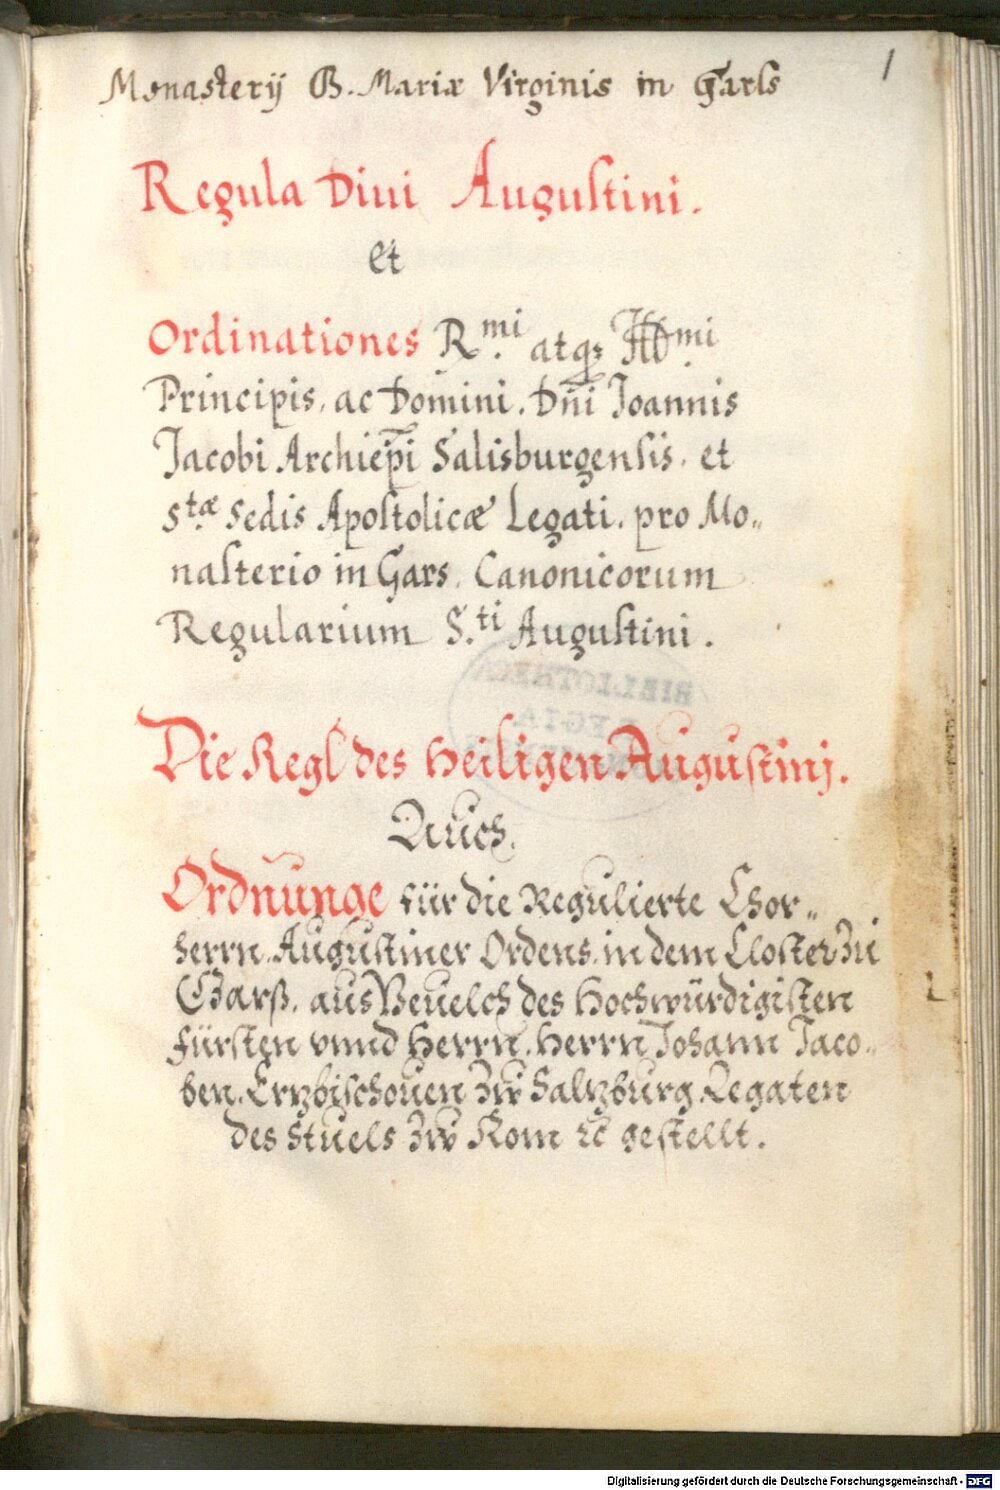 Monasterij B. Mariæ Virginis in Garls
1
Regula Diui Augustini.
et
Ordinationes R.mi atq;
Principis, ac Domini. Dñi Joannis
Jacobi Archiepi Salisburgensis, et
S.tæ Sedis Apostolicæ Legati. pro Mo„
nasterio in Gars. Canonicorum
Regularium S.ti Augustini.
BIBLIOTHECA
REGIA
Die Regl des Heiligen Augustinj.
Auch.
Ordnunge für die Regulierte Chor„
herrn. Augustiner Ordens. in dem Closter Zu
Gharß. aus Beuelch des Hochwürdigisten
fürsten vnnd Herrn. Herrn Johann Jaco„
ben. Ertzbischouen Zw Saltzburg. Legaten
des Stuels Zw Rom ꝛc gestellt.
Digitalisierung gefördert durch die Deutsche Forschungsgemeinschaft - DFG